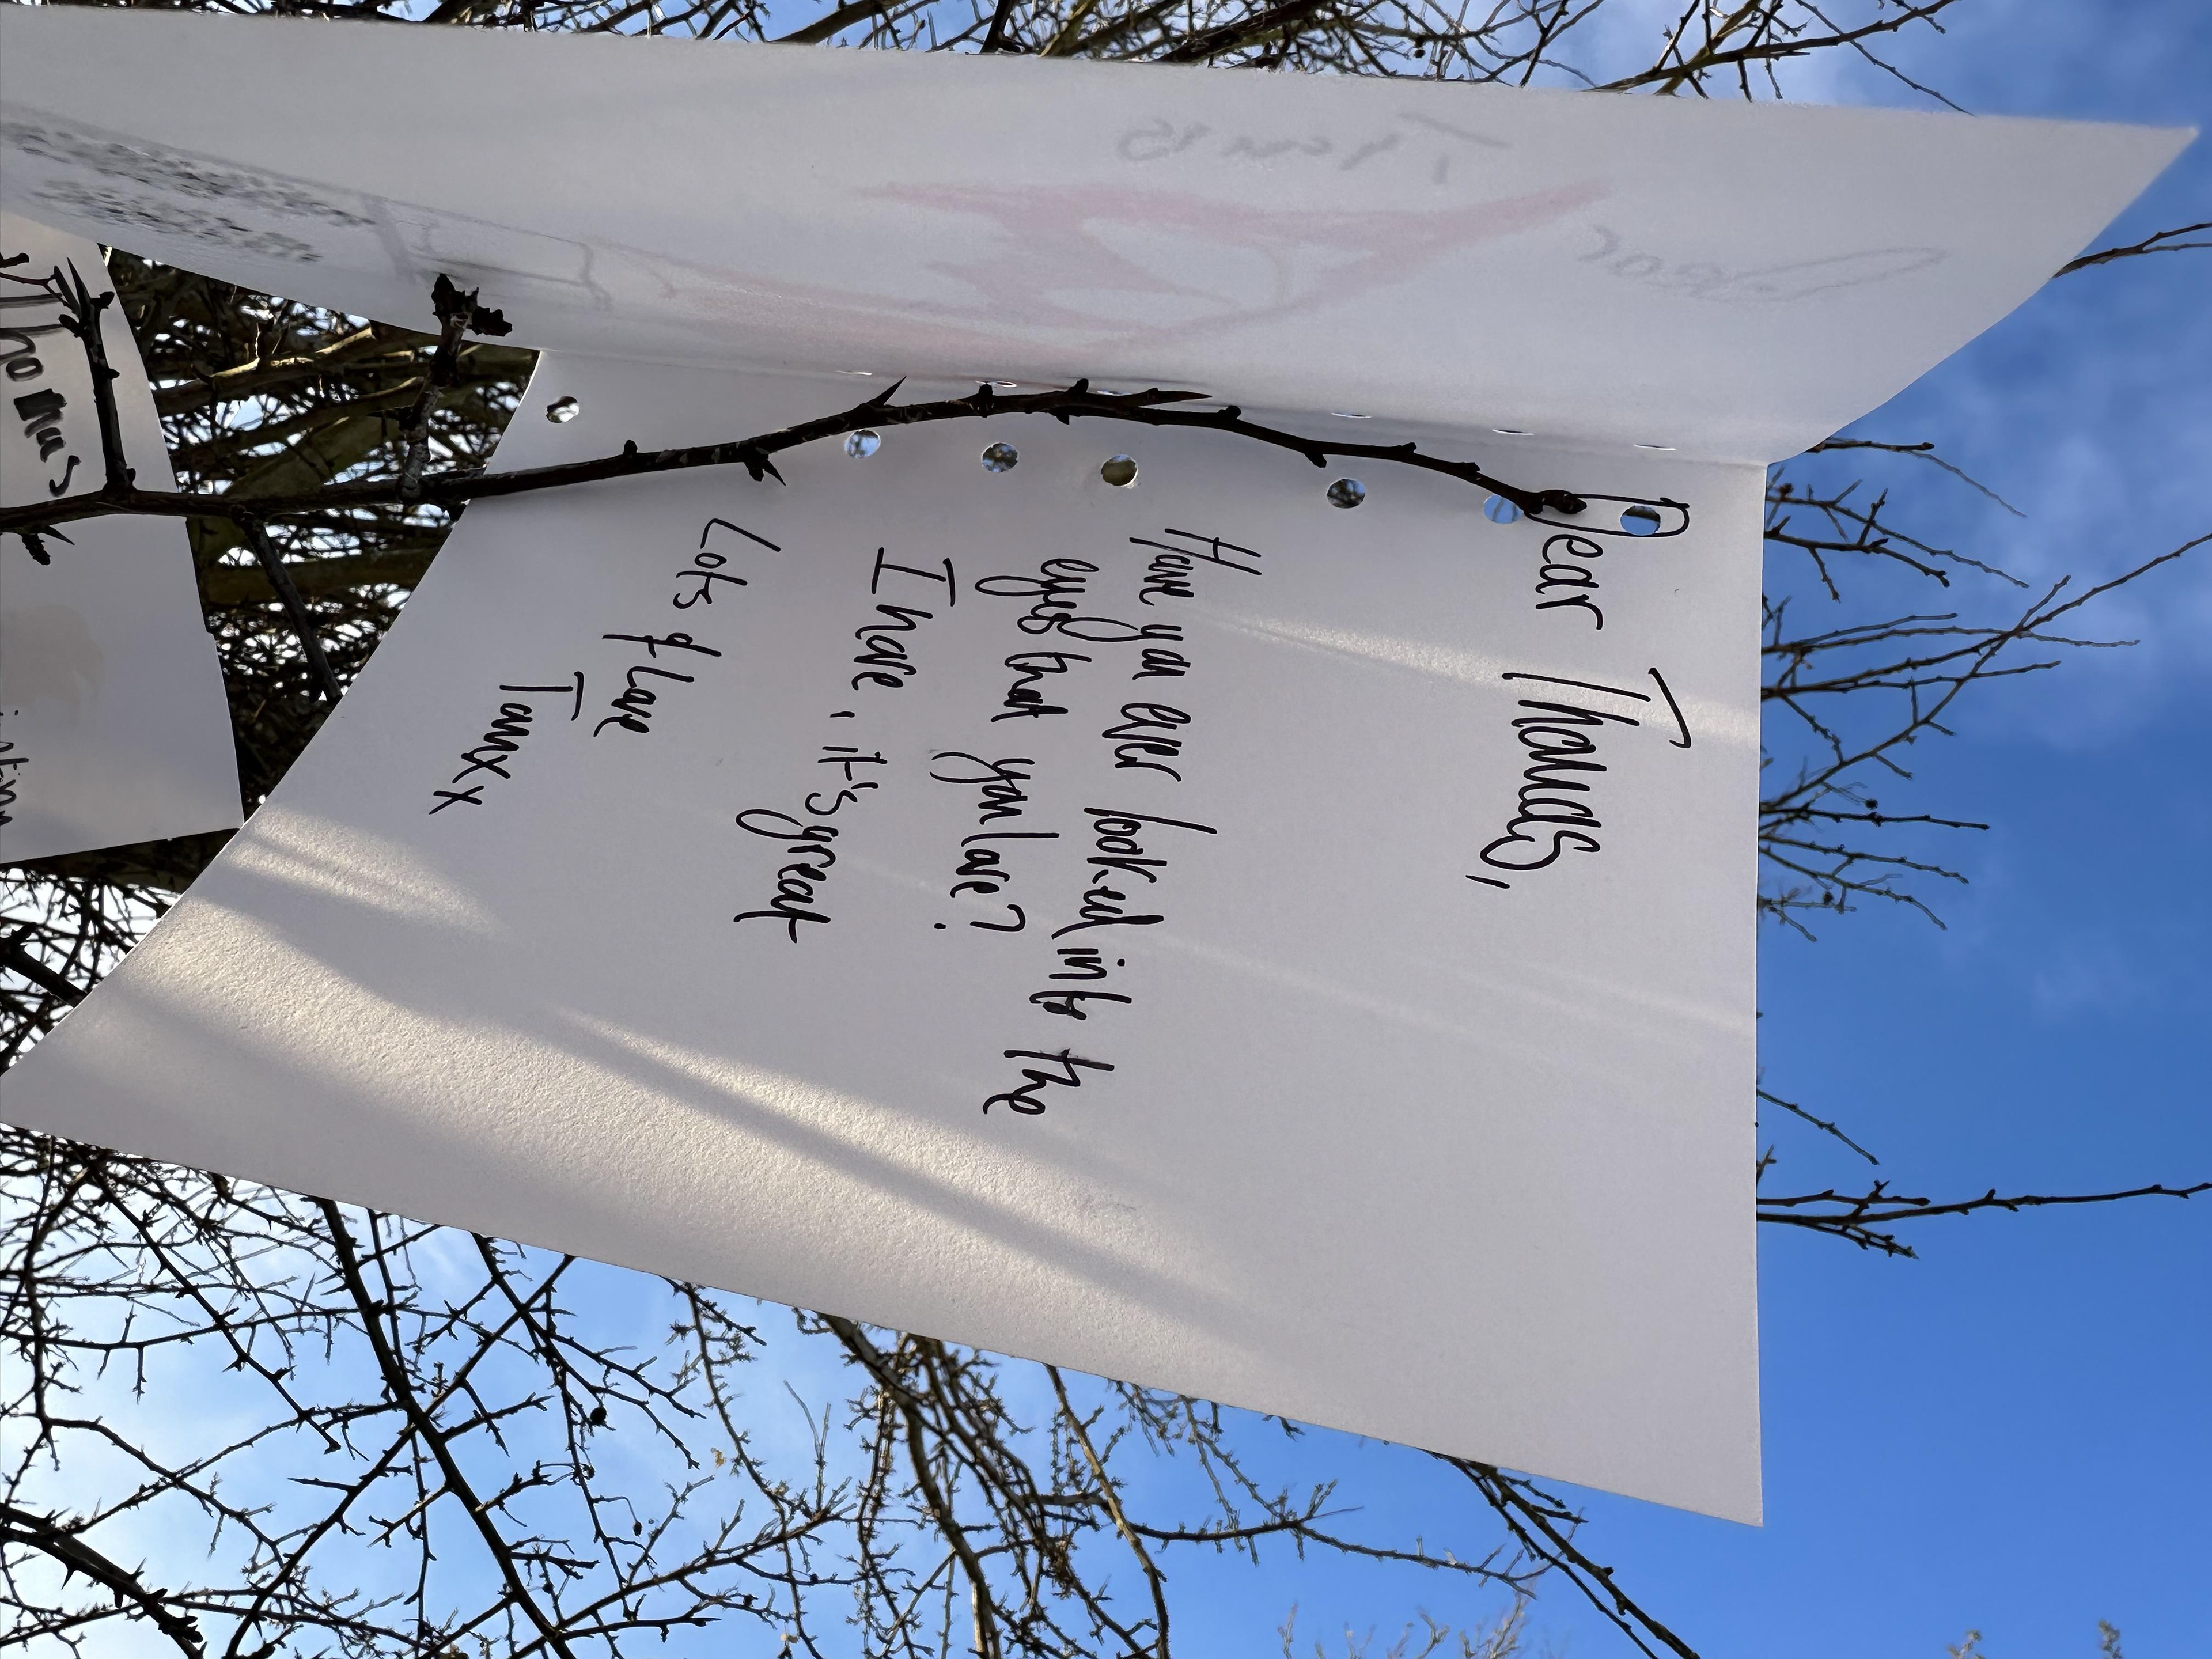 Dear Thomas,
Have you ever looked into the
eyes that you love?
I have, it's great
Lots of Love
Tomxx
Dear
Thomas